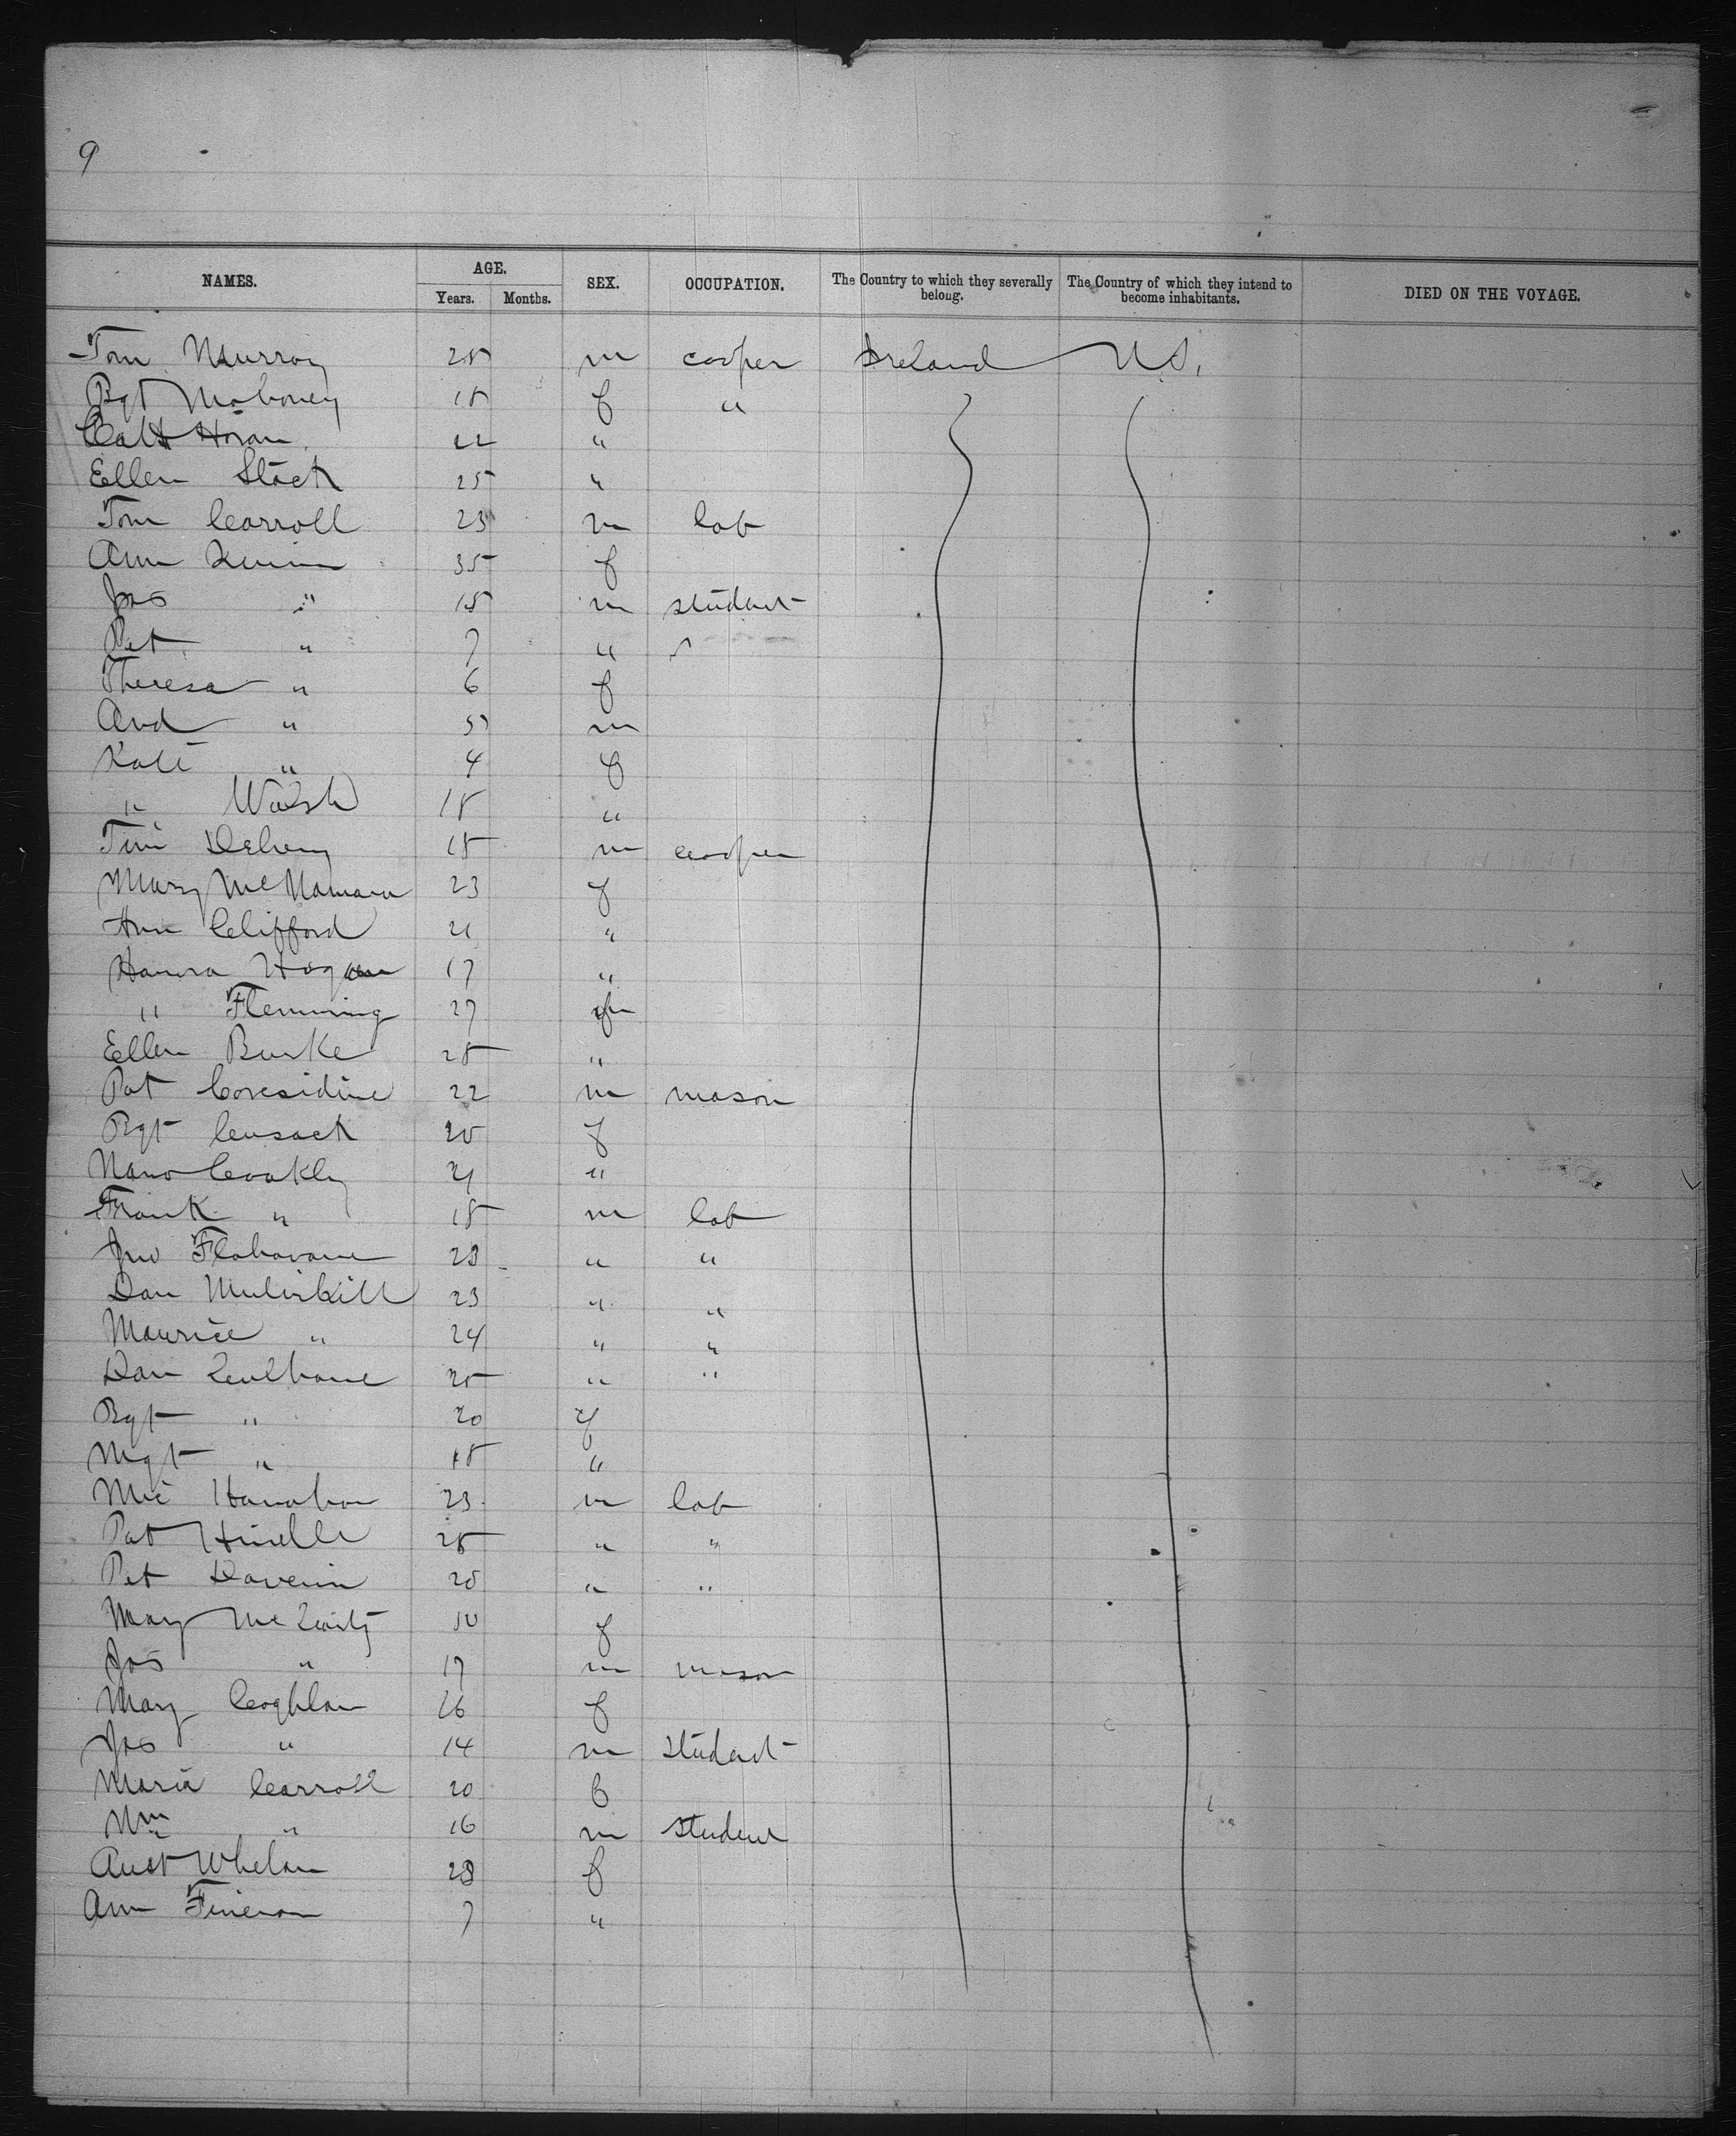 9
NAMES. AGE. SEX. OCCUPATION. The Country to which they severally belong. The Country of which they intend to become inhabitants. DIED ON THE VOYAGE.
Years. Months.
Tom Murray 25 m cooper Ireland U.S.
Bgt Mahoney 18 f "
Cath Horan 22 "
Ellen Stack 25 "
Tom Carroll 23 m lab
Ann 35 f
Jas " 15 m student
Pat " 7 "
Theresa " 6 f
And " 5 m
Kate " 4 f
" Walsh 18 "
Tim 18 m cooper
Mary McNamara 23 f
Ann Clifford 21 "
Hanora Hogan 17 "
" Flemming 27 f
Ellen Burke 25 "
Pat Considine 22 m mason
Bgt Cusack 20 f
Nano Coakly 21 "
Frank " 18 m lab
Jno Flahavane 23 " "
Dan Mulvihill 23 " "
Maurice " 24 " "
Dan Culhane 25 " "
Bgt " 20 f
Mgt " 18 "
Mic Hanahan 23 m lab
Pat 25 " "
Pat Davern 20 " "
Mary 10 f
Jas " 17 m mason
Mary Coghlan 26 f
Jas " 14 m student
Maria Carroll 20 f
Wm " 16 m student
Aust Whelan 28 f
Ann Fineran 7 "